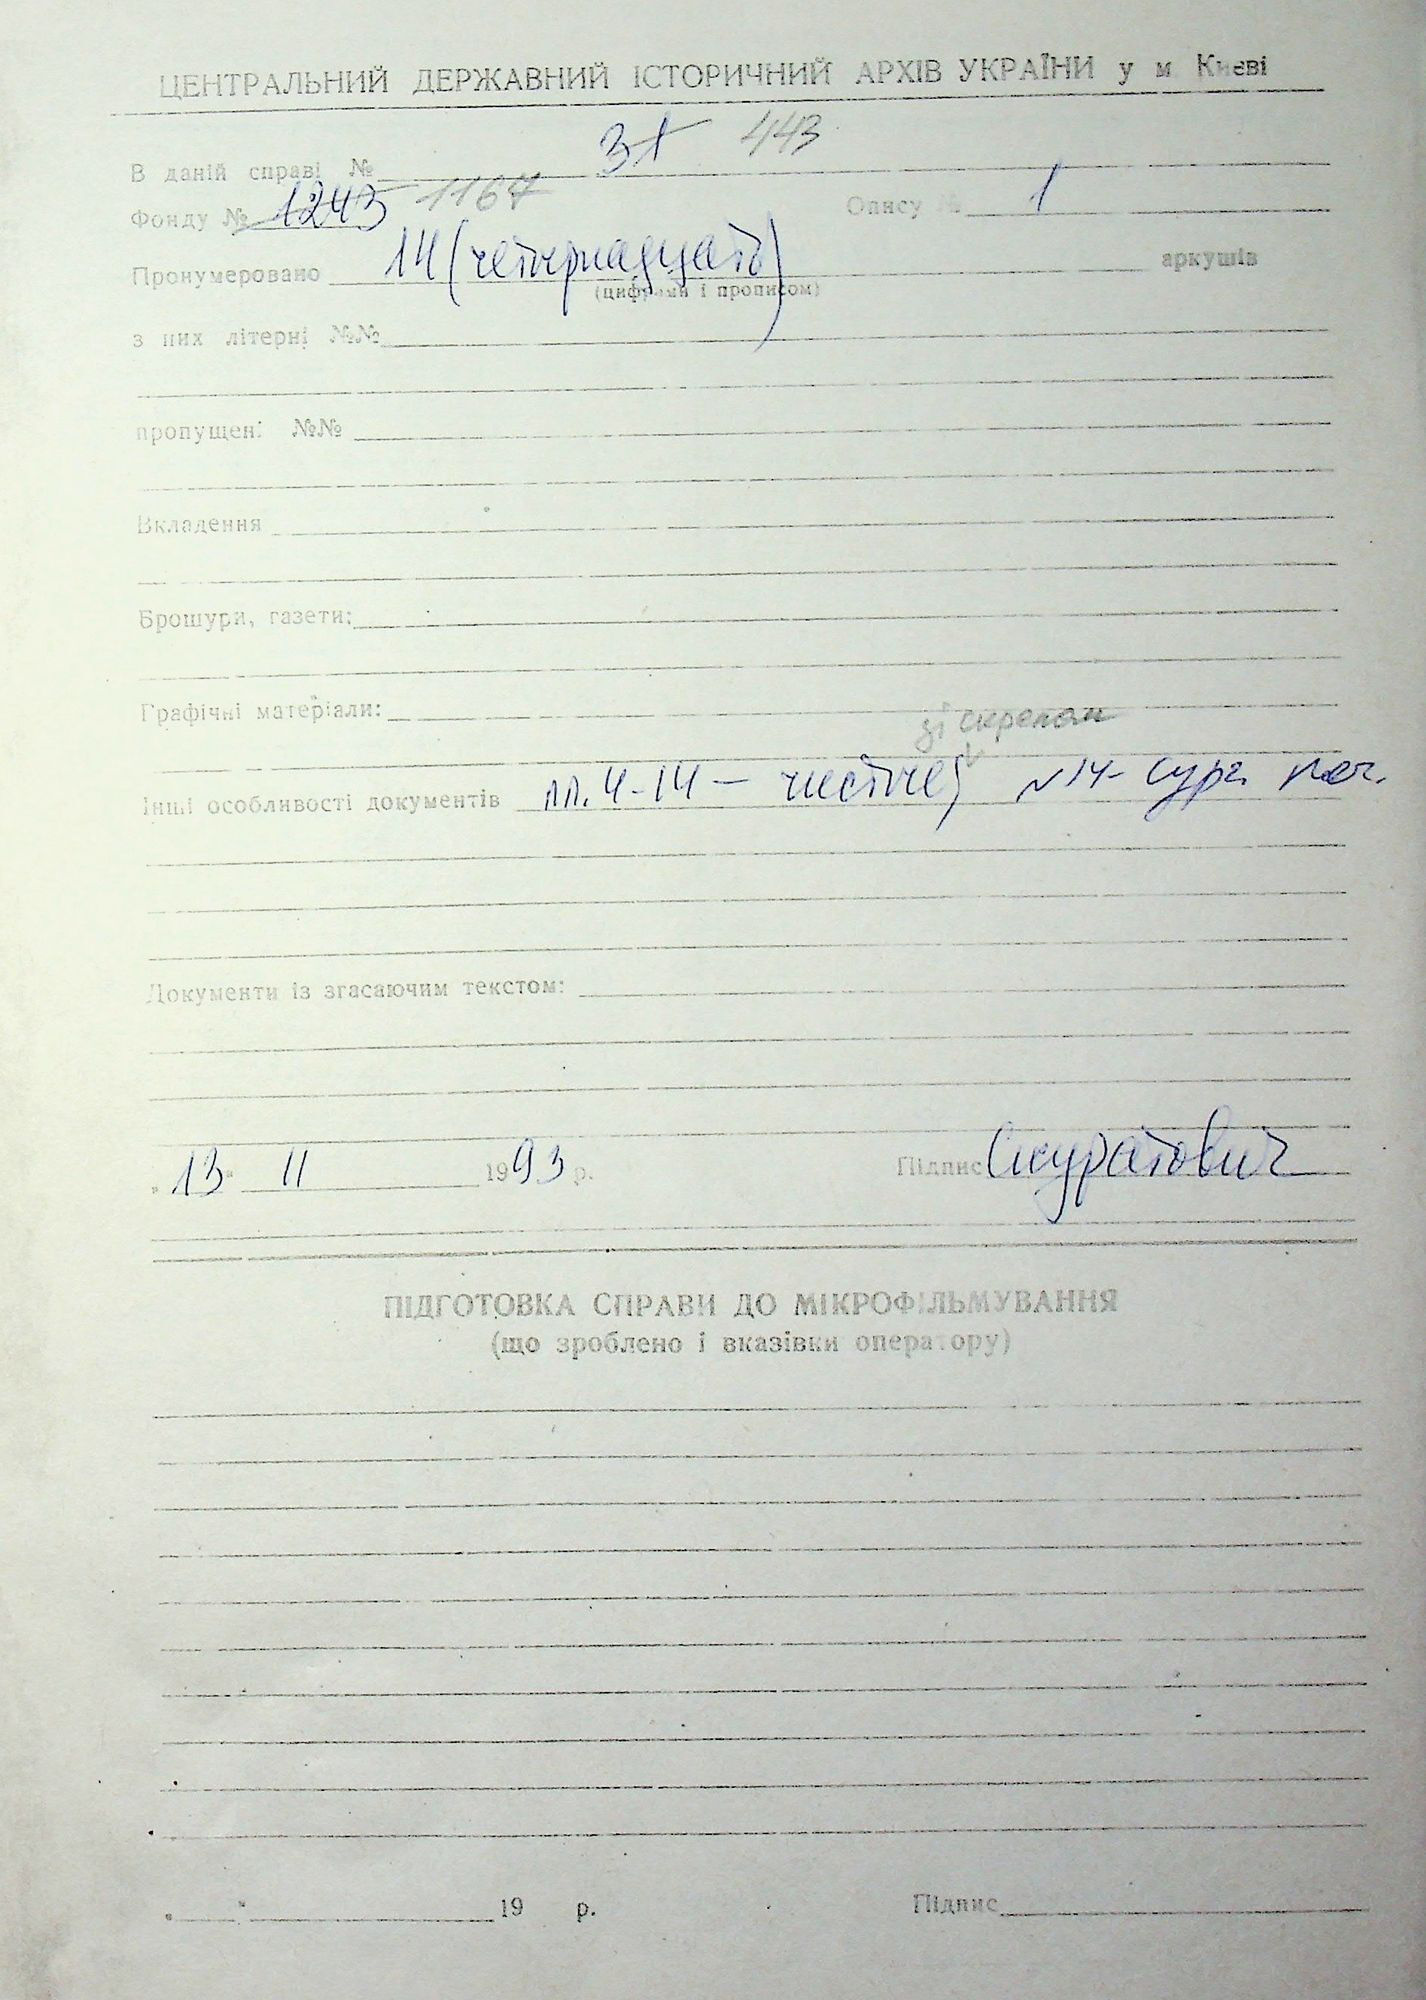 ЦЕНТРАЛЬНИЙ ДЕРЖАВНИЙ ІСТОРИЧНИЙ АРХІВ УКРАЇНИ у м Києві
В даній справі № 31 443
Фонду № 1243 1167 Опису № 1
Пронумеровано 14 (чотирнадцать) аркушів
(цифрами і прописом)
з них літерні №№
пропущені №№
Вкладення
Брошури, газети:
Графічні матеріали:
зі скрепам
Інші особливості документів лл. 4-14 – чисті, л14- сург. печ.
Документи із згасаючим текстом:
„ 13 " II 1993 р. Підпис Скуратович
ПІДГОТОВКА СПРАВИ ДО МІКРОФІЛЬМУВАННЯ
(що зроблено і вказівки оператору)
„ " 19 р. Підпис